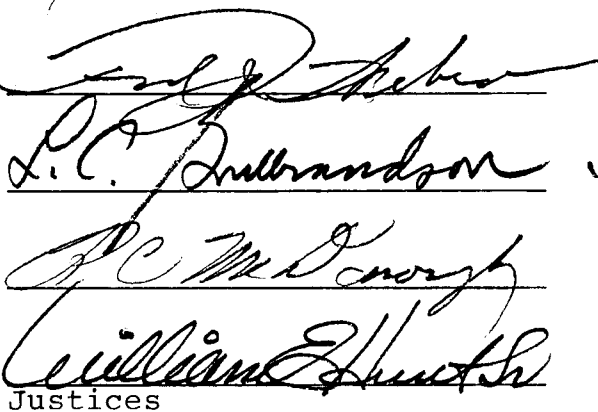 Fred J. Weber
L. C. Gulbrandson
R. C. McDonough
William E Hunt Sr
Justices